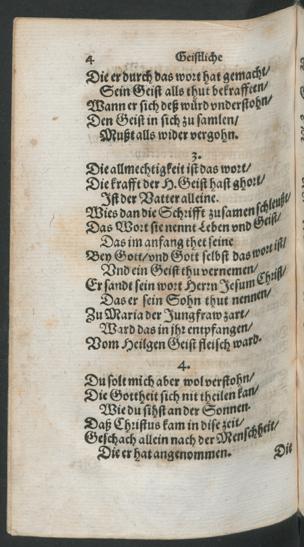 4 Geistliche
Die er durch das wort hat gemacht/
Sein Geist alls thut bekrafften/
Wann er sich deß würd vnderstohn/
Den Geist in sich zu samlen/
Mußt alls wider vergohn.
3.
Die allmechtigkeit ist das wort/
Die krafft der H. Geist hast ghort/
Ist der Vatter alleine.
Wies dan die Schrifft zusamen schleußt/
Das Wort sie nennt Leben vnd Geist/
Das im anfang thet seine
Bey Gott/vnd Gott selbst das wort ist/
Vnd ein Geist thu vernemen/
Er sandt sein wort Herrn Jesum Christ/
Das er sein Sohn thut nennen/
Zu Maria der Jungfraw zart/
Ward das in jhr entpfangen/
Vom Heilgen Geist fleisch ward.
4.
Du solt mich aber wol verstohn/
Die Gottheit sich nit theilen kan/
Wie du sihst an der Sonnen.
Daß Christus kam in dise zeit/
Geschach allein nach der Menschheit/
Die er hat angenommen.
Die